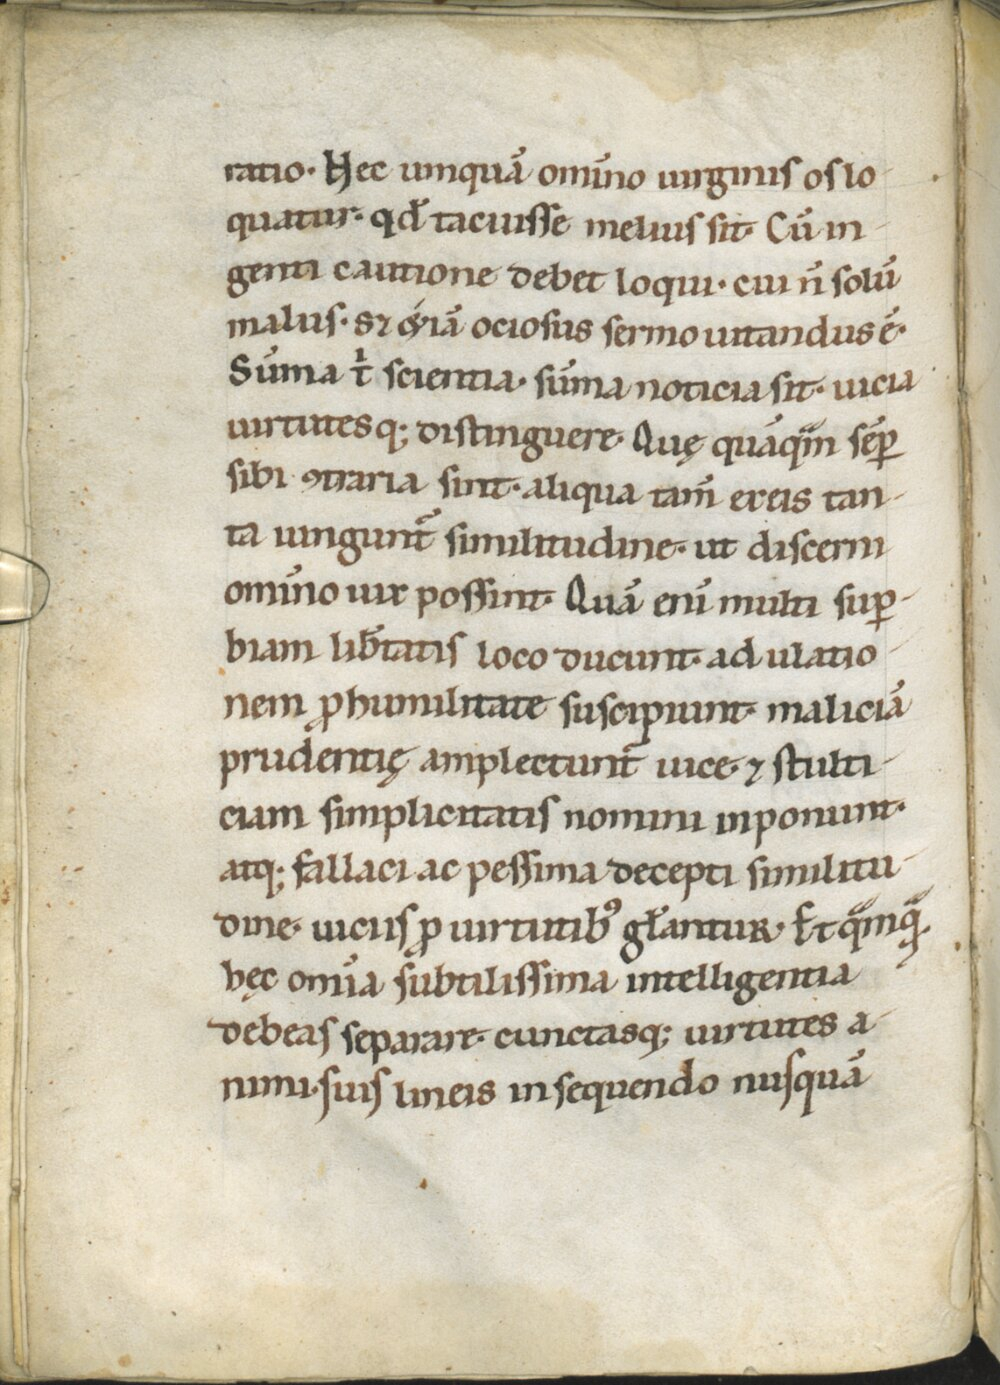 ratio· Hec umquā omīno uirginis os lo
quatur· qđ tacuisse melius sit· Cū in
genti cautione debet loqui· cui n̄ solū
malus· s; & etiā ociosus sermo uitandus ē·
Sūma t̄ scientia· sūma noticia sit· uicia
uirtutesq; distinguere· Quę quāqm̄ sēꝑ
sibi ꝯtraria sint· aliqua tam̄ ex eis tan
ta iungunt̄ similitudine· ut discerni
omīno uix possint· Quā enī multi suꝑ
biam lib̄tatis loco ducunt· adulatio
nem ꝓ humilitate suscipiunt· maliciā
prudentię amplectunt̄ uice· ⁊ stulti
ciam simplicitatis nomini inponunt·
atq; fallaci ac pessima decepti similitu
dine· uiciis ꝓ uirtutibꝰ gl̄antur· Et qmq̄
hęc omīa subtilissima intelligentia
debeas separare· cunctasq; uirtutes a
nimi· suis lineis insequendo nusquā